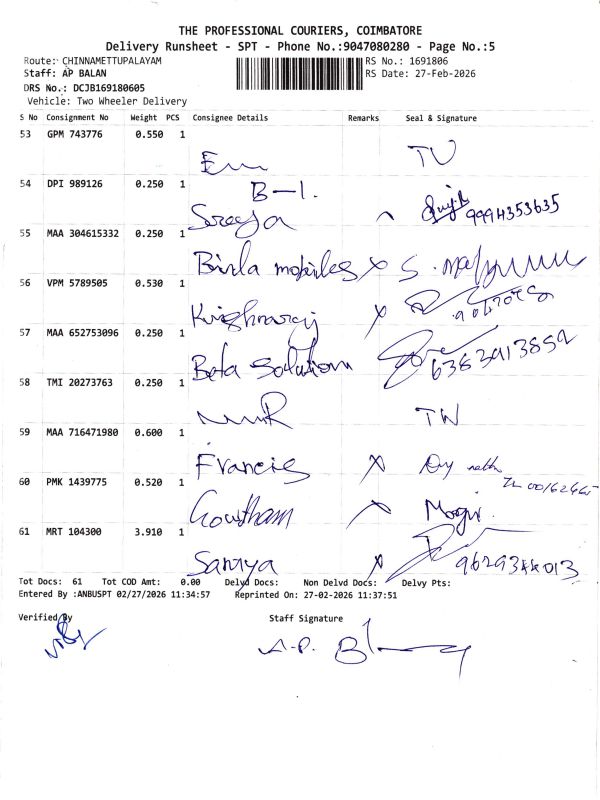 THE PROFESSIONAL COURIERS, COIMBATORE
Delivery Runsheet - SPT - Phone No.:9047080280 - Page No.:5
Route: CHINNAMETTUPALAYAM RS No.: 1691806
Staff: AP BALAN RS Date: 27-Feb-2026
DRS No.: DCJB169180605
Vehicle: Two Wheeler Delivery
S No Consignment No Weight PCS Consignee Details Remarks Seal & Signature
53 GPM 743776 0.550 1
54 DPI 989126 0.250 1
B-1.
9994353635
55 MAA 304615332 0.250 1
Birla mobiles x S.
56 VPM 5789505 0.530 1
Krishnaraj x
57 MAA 652753096 0.250 1
Beta Solution 6383913859
58 TMI 20273763 0.250 1
59 MAA 716471980 0.600 1
Francis x
60 PMK 1439775 0.520 1
Gowtham
61 MRT 104300 3.910 1
Saranya x 9629344013
Tot Docs: 61 Tot COD Amt: 0.00 Delvd Docs: Non Delvd Docs: Delvy Pts:
Entered By :ANBUSPT 02/27/2026 11:34:57 Reprinted On: 27-02-2026 11:37:51
Verified By Staff Signature
A.P.